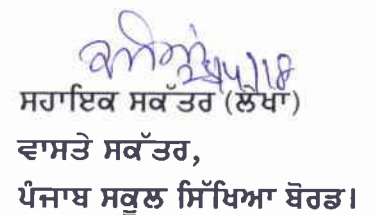 ਸਹਾਇਕ ਸਕੱਤਰ (ਲੇਖਾ)
ਵਾਸਤੇ ਸਕੱਤਰ,
ਪੰਜਾਬ ਸਕੂਲ ਸਿੱਖਿਆ ਬੋਰਡ।